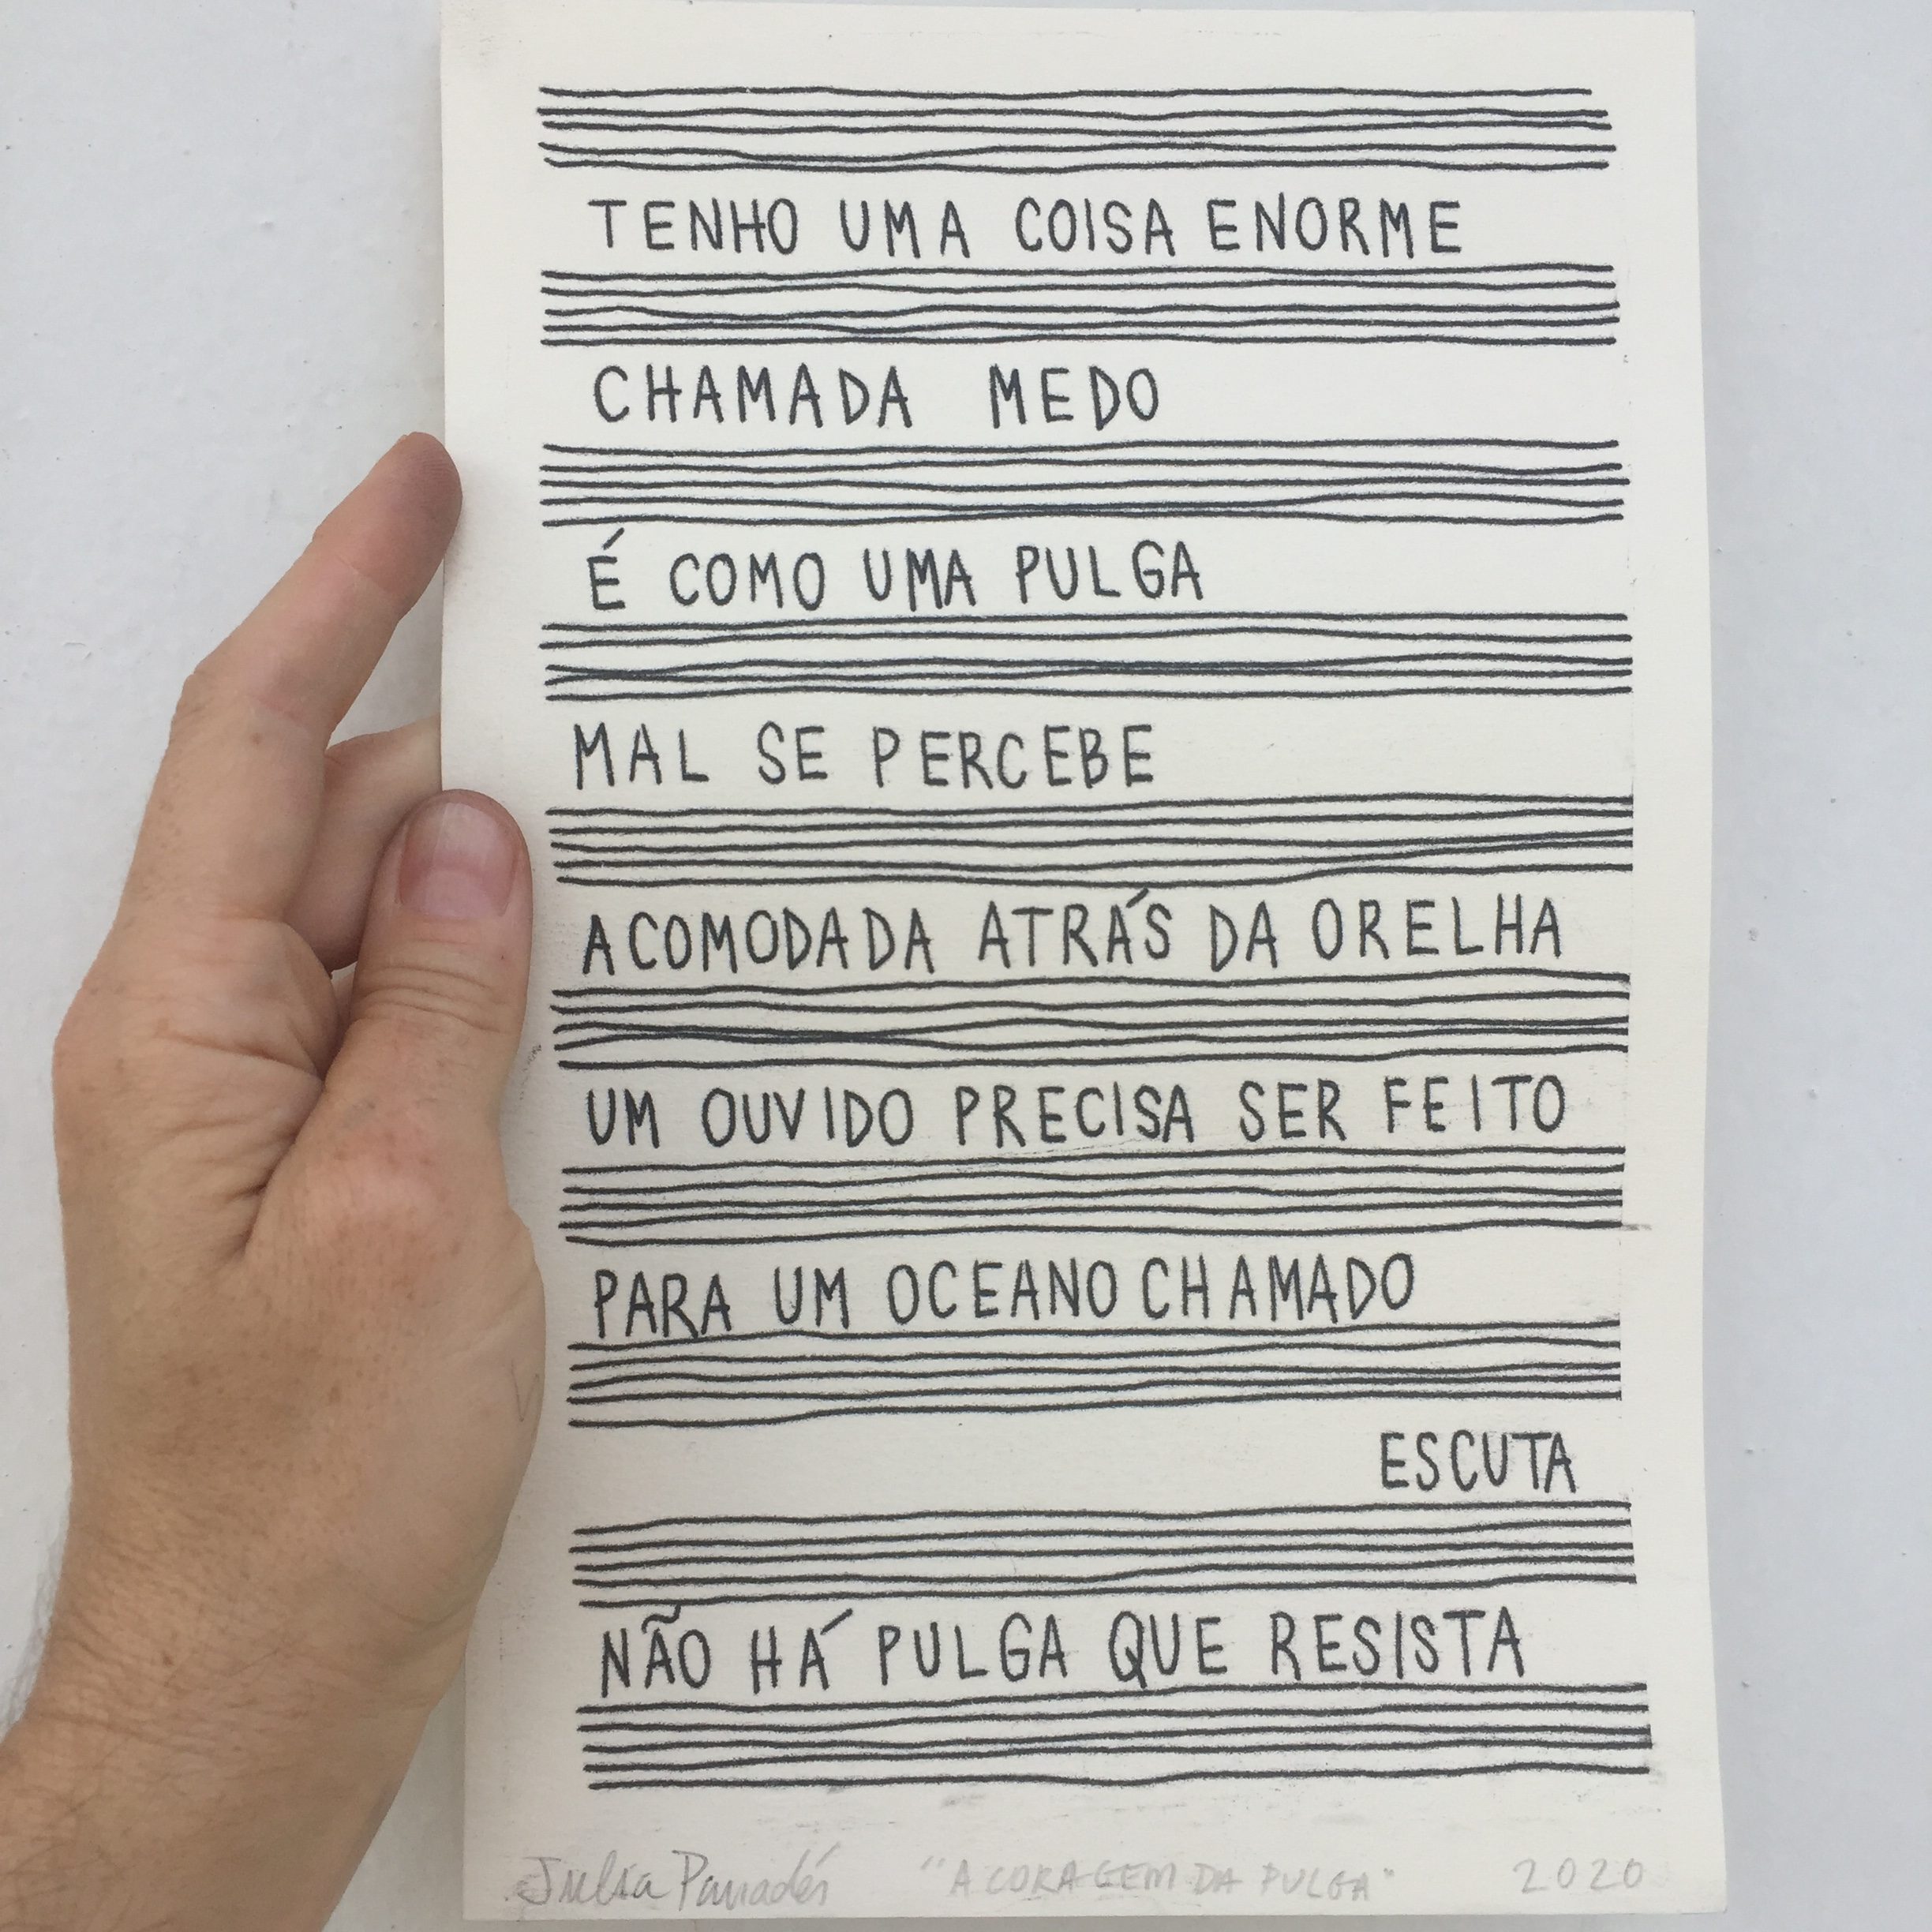 TENHO UMA COISA ENORME
CHAMADA MEDO
É COMO UMA PULGA
MAL SE PERCEBE
ACOMODADA ATRÁS DA ORELHA
UM OUVIDO PRECISA SER FEITO
PARA UM OCEANO CHAMADO
ESCUTA
NÃO HÁ PULGA QUE RESISTA
Julia Panadés "A CORAGEM DA PULGA" 2020